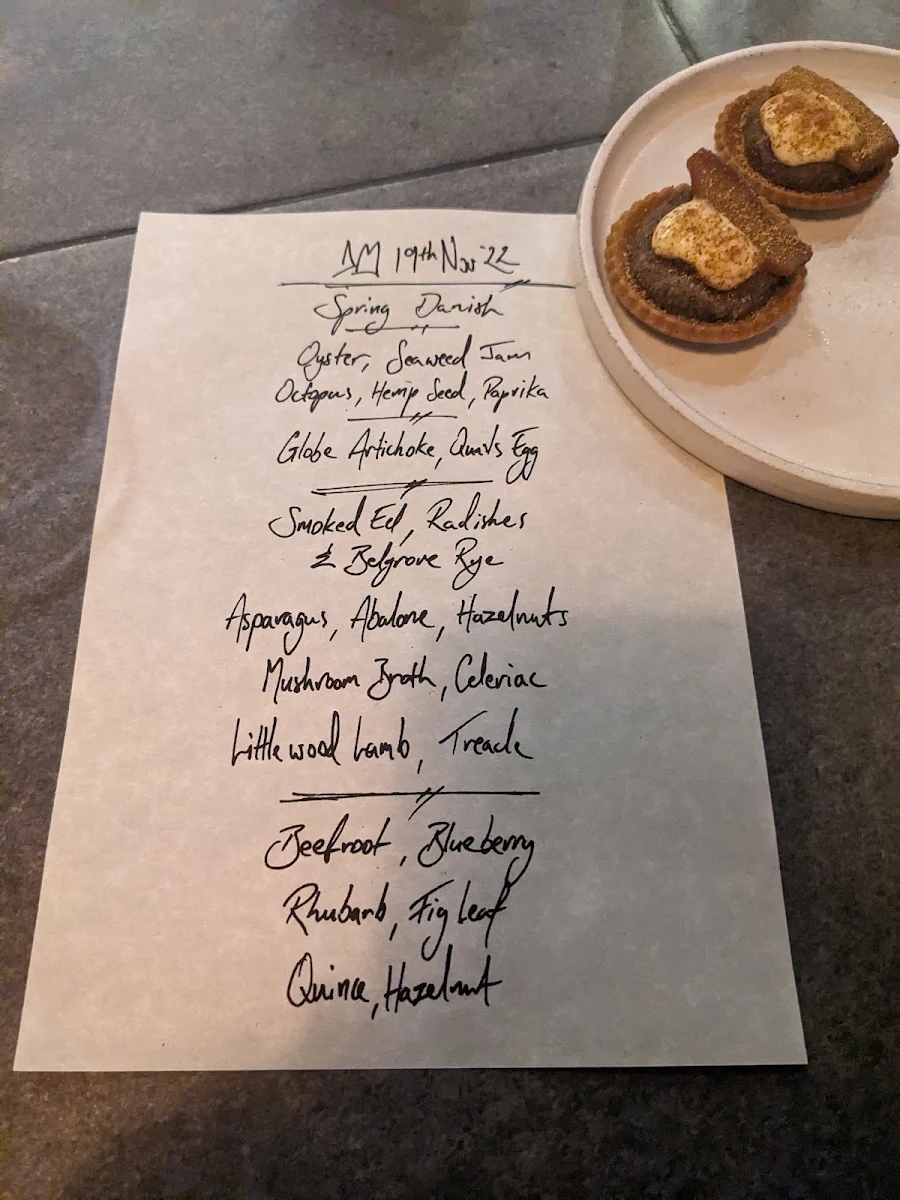 19th Nov '22
Spring Danish
Oyster, Seaweed Jam
Octopus, Hemp Seed, Paprika
Globe Artichoke, Quails Egg
Smoked Eel, Radishes
& Belgrove Rye
Asparagus, Abalone, Hazelnuts
Mushroom Broth, Celeriac
Littlewood Lamb, Treacle
Beetroot, Blueberry
Rhubarb, Fig Leaf
Quince, Hazelnut